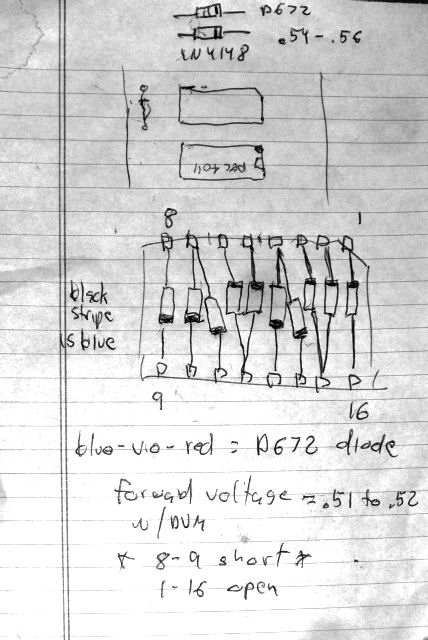 D672
.54-.56
1N4148
DEC104
8 1
black
stripe
is blue
9 16
blue-vio-red = D672 diode
forward voltage = .51 to .52
w/DVM
* 8-9 short *
1-16 open